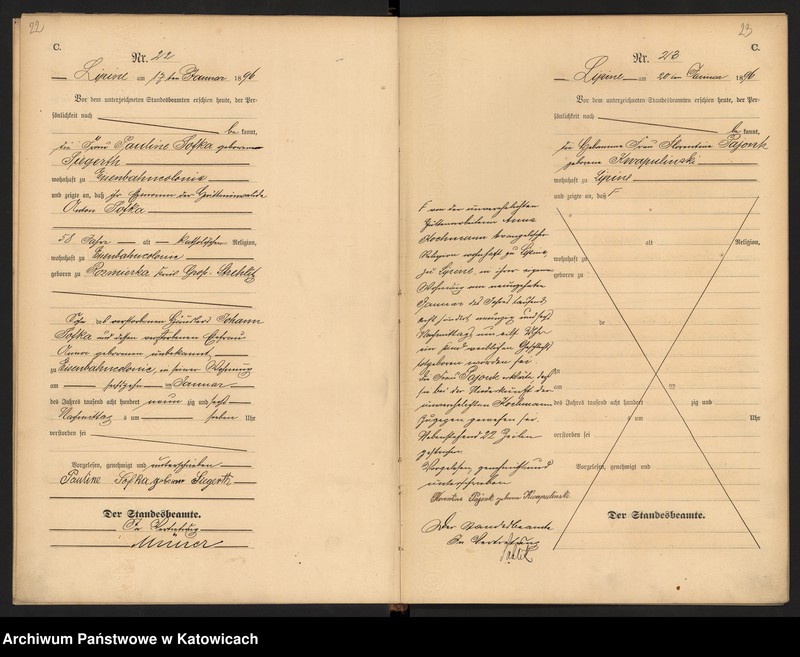 22
C.
Nr. 22
Lipine am 17ten Januar 1896
Vor dem unterzeichneten Standesbeamten erschien heute, der Per-
sönlichkeit nach
be kannt,
die Frau Pauline Sofka geborene
Siegerth
wohnhaft zu Eisenbahncolonie
und zeigte an, daß ihr Ehemann der
Anton Sofka
58 Jahre alt katholischer Religion,
wohnhaft zu Eisenbahncolonie
geboren zu Rozmierka Kreis Groß-Strehlitz
Sohn des verstorbenen Häuslers Johann
Sofka und dessen verstorbenen Ehefrau
Anna geborenen unbekannt
zu Eisenbahncolonie, in seiner Wohnung
am sechszehn ten Januar
des Jahres tausend acht hundert neun zig und sechs
Nachmittag s um sieben Uhr
verstorben sei
Vorgelesen, genehmigt und unterschrieben
Pauline Sofka geborene Siegerth
Der Standesbeamte.
In Vertretung
23
C.
Nr. 23
Lipine am 20ten Januar 1896
Vor dem unterzeichneten Standesbeamten erschien heute, der Per-
sönlichkeit nach
be kannt,
die Hebamme Frau Florentine Pajonk
geborene Kwapulinski
wohnhaft zu Lipine
und zeigte an, daß F
alt Religion,
wohnhaft zu
geboren zu
de
zu
am ten
des Jahres tausend acht hundert zig und
um Uhr
verstorben sei
Vorgelesen, genehmigt und
Der Standesbeamte.
F von der unverehelichten
Hüttenarbeiterin Anna
Kochmann evangelischer
Religion wohnhaft zu Lipine,
zu Lipine, in ihrer eigenen
Wohnung am neunzehnten
Januar des Jahres tausend
acht hundert neunzig und sechs
Nachmittags um acht Uhr
ein Kind weiblichen Geschlechts
todtgeboren worden sei.
Die Frau Pajonk erklärte, daß
sie bei der Niederkunft der
unverehelichten Kochmann
zugegen gewesen sei.
Nebenstehend 22 Zeilen
gestrichen.
Vorgelesen, genehmigt und
unterschrieben
Florentine Pajonk geborene Kwapulinski
Der Standesbeamte
In Vertretung
Archiwum Państwowe w Katowicach